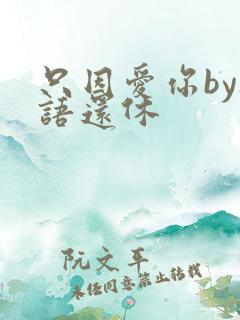 只因愛你by
語還休
阮文平
未经同意禁止转载